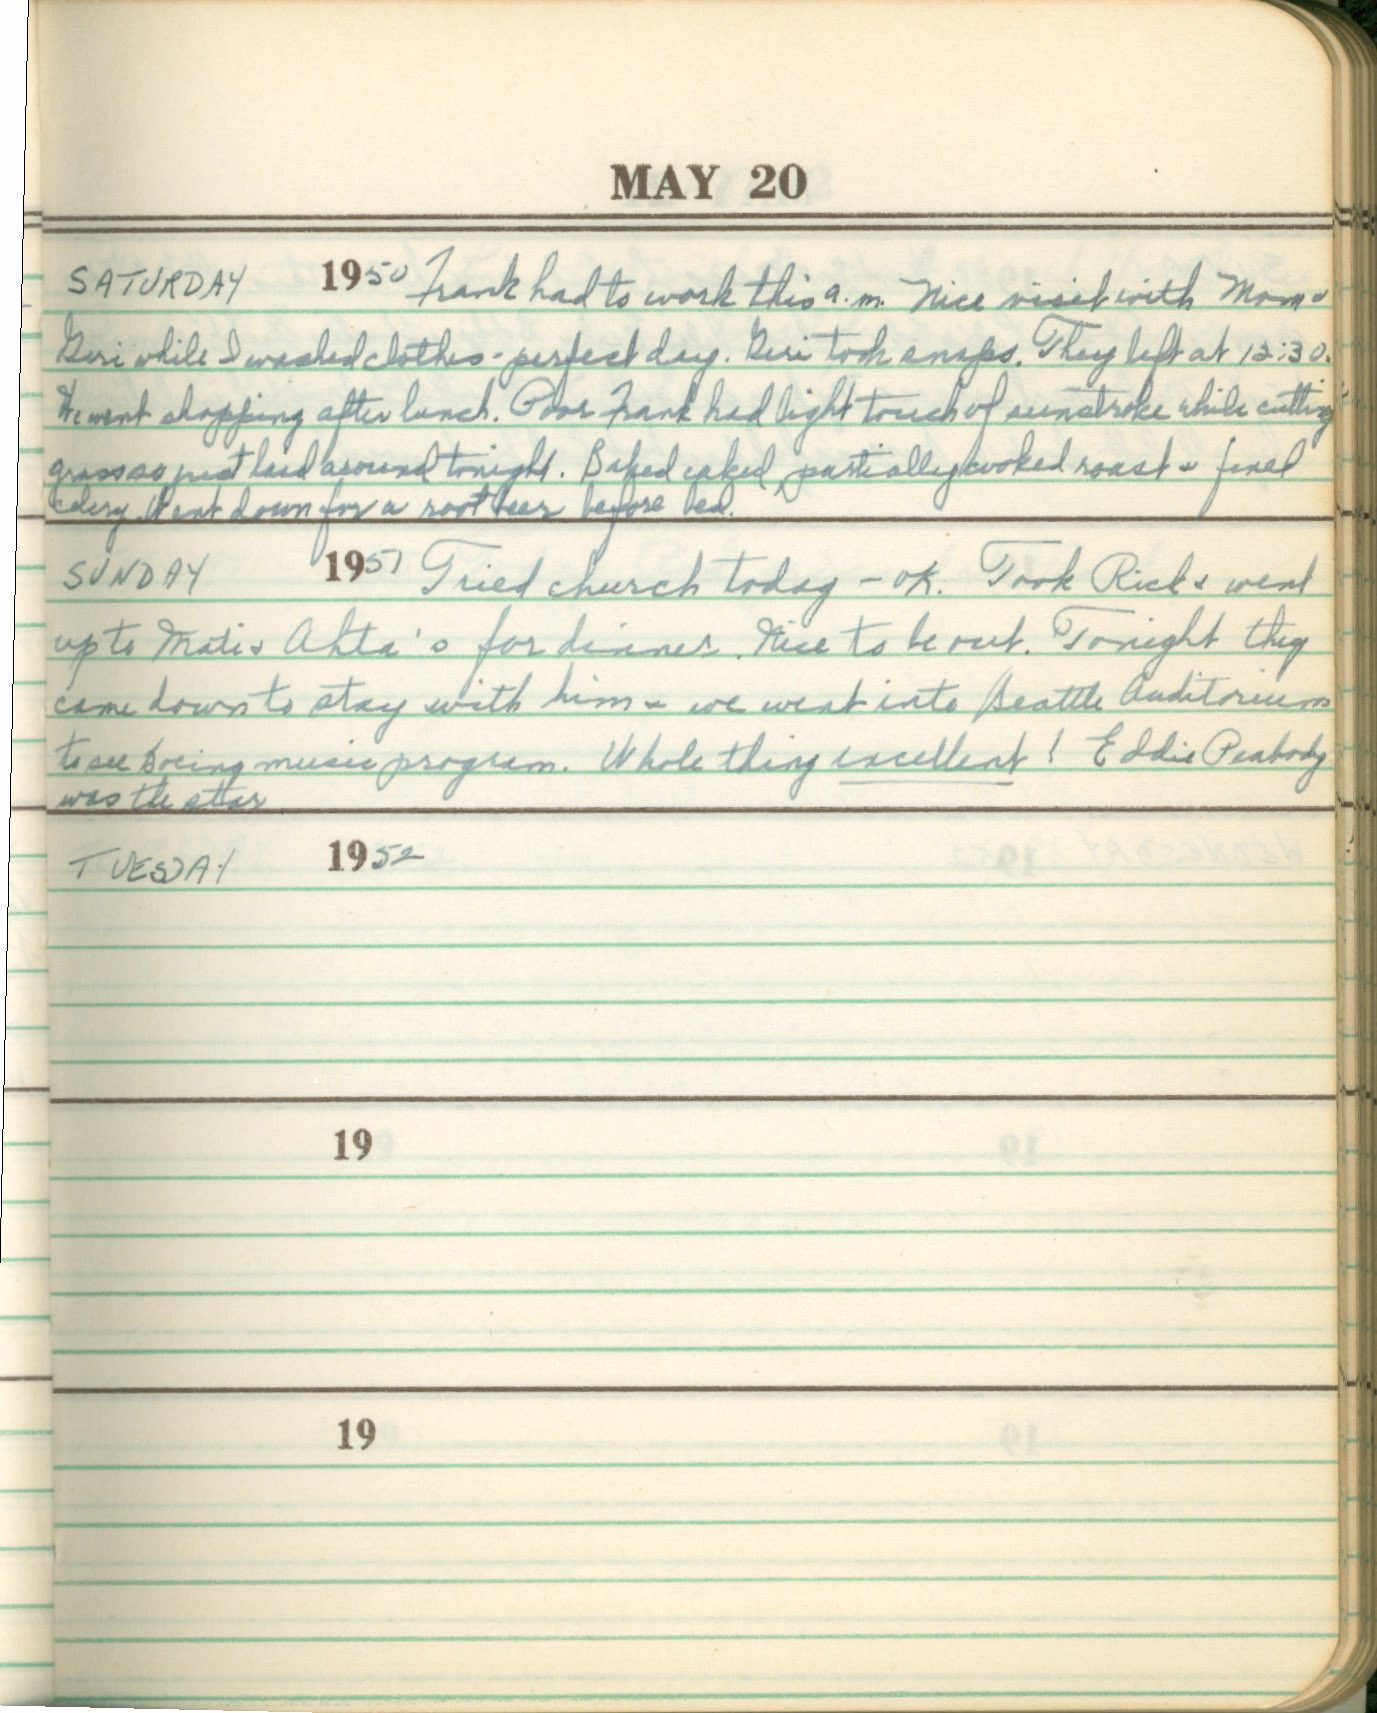 MAY 20
SATURDAY 1950 Frank had to work this a.m. Nice visit with Mom &
Geri while I washed clothes - perfect day. Geri took snaps. They left at 12:30.
We went shopping after lunch. Poor Frank had light touch of sunstroke while cutting
grass so just laid around tonight. Baked caked, partially cooked roast &
celery. Went down for a root beer before bed.
SUNDAY 1951 Tried church today - ok. Took Rick & went
up to & Ahta's for dinner. Nice to be out. Tonight they
came down to stay with him & we went into Seattle Auditorium
to see Boeing music program. Whole thing excellent! Eddie Peabody
was the star
TUESDAY 1952
19
19